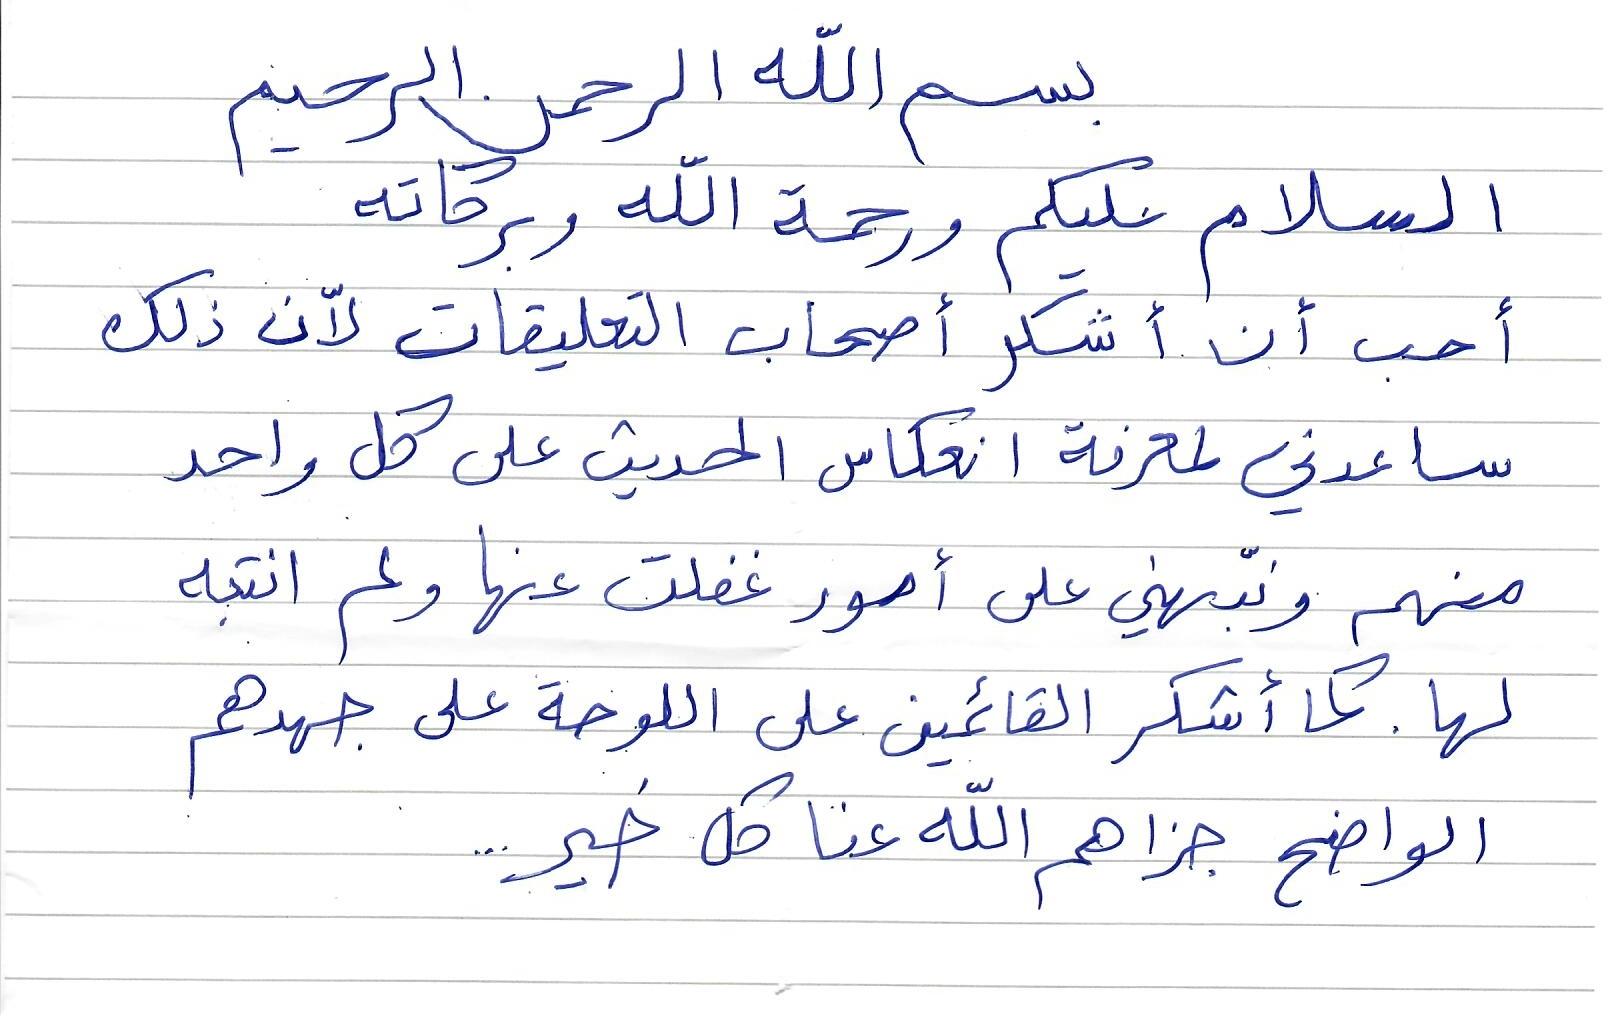 بسم اللّه الرحمن الرحيم
السلام عليكم ورحمة اللّه وبركاته
أحب أن أشكر أصحاب التعليقات لأنّ ذلك
ساعدني لمعرفة انعكاس الحديث على كل واحد
منهم ونبّهني على أمور غفلت عنها ولم انتبه
لها. كما أشكر القائمين على اللوحة على جهدهم
الواضح جزاهم اللّه عنا كل خير...